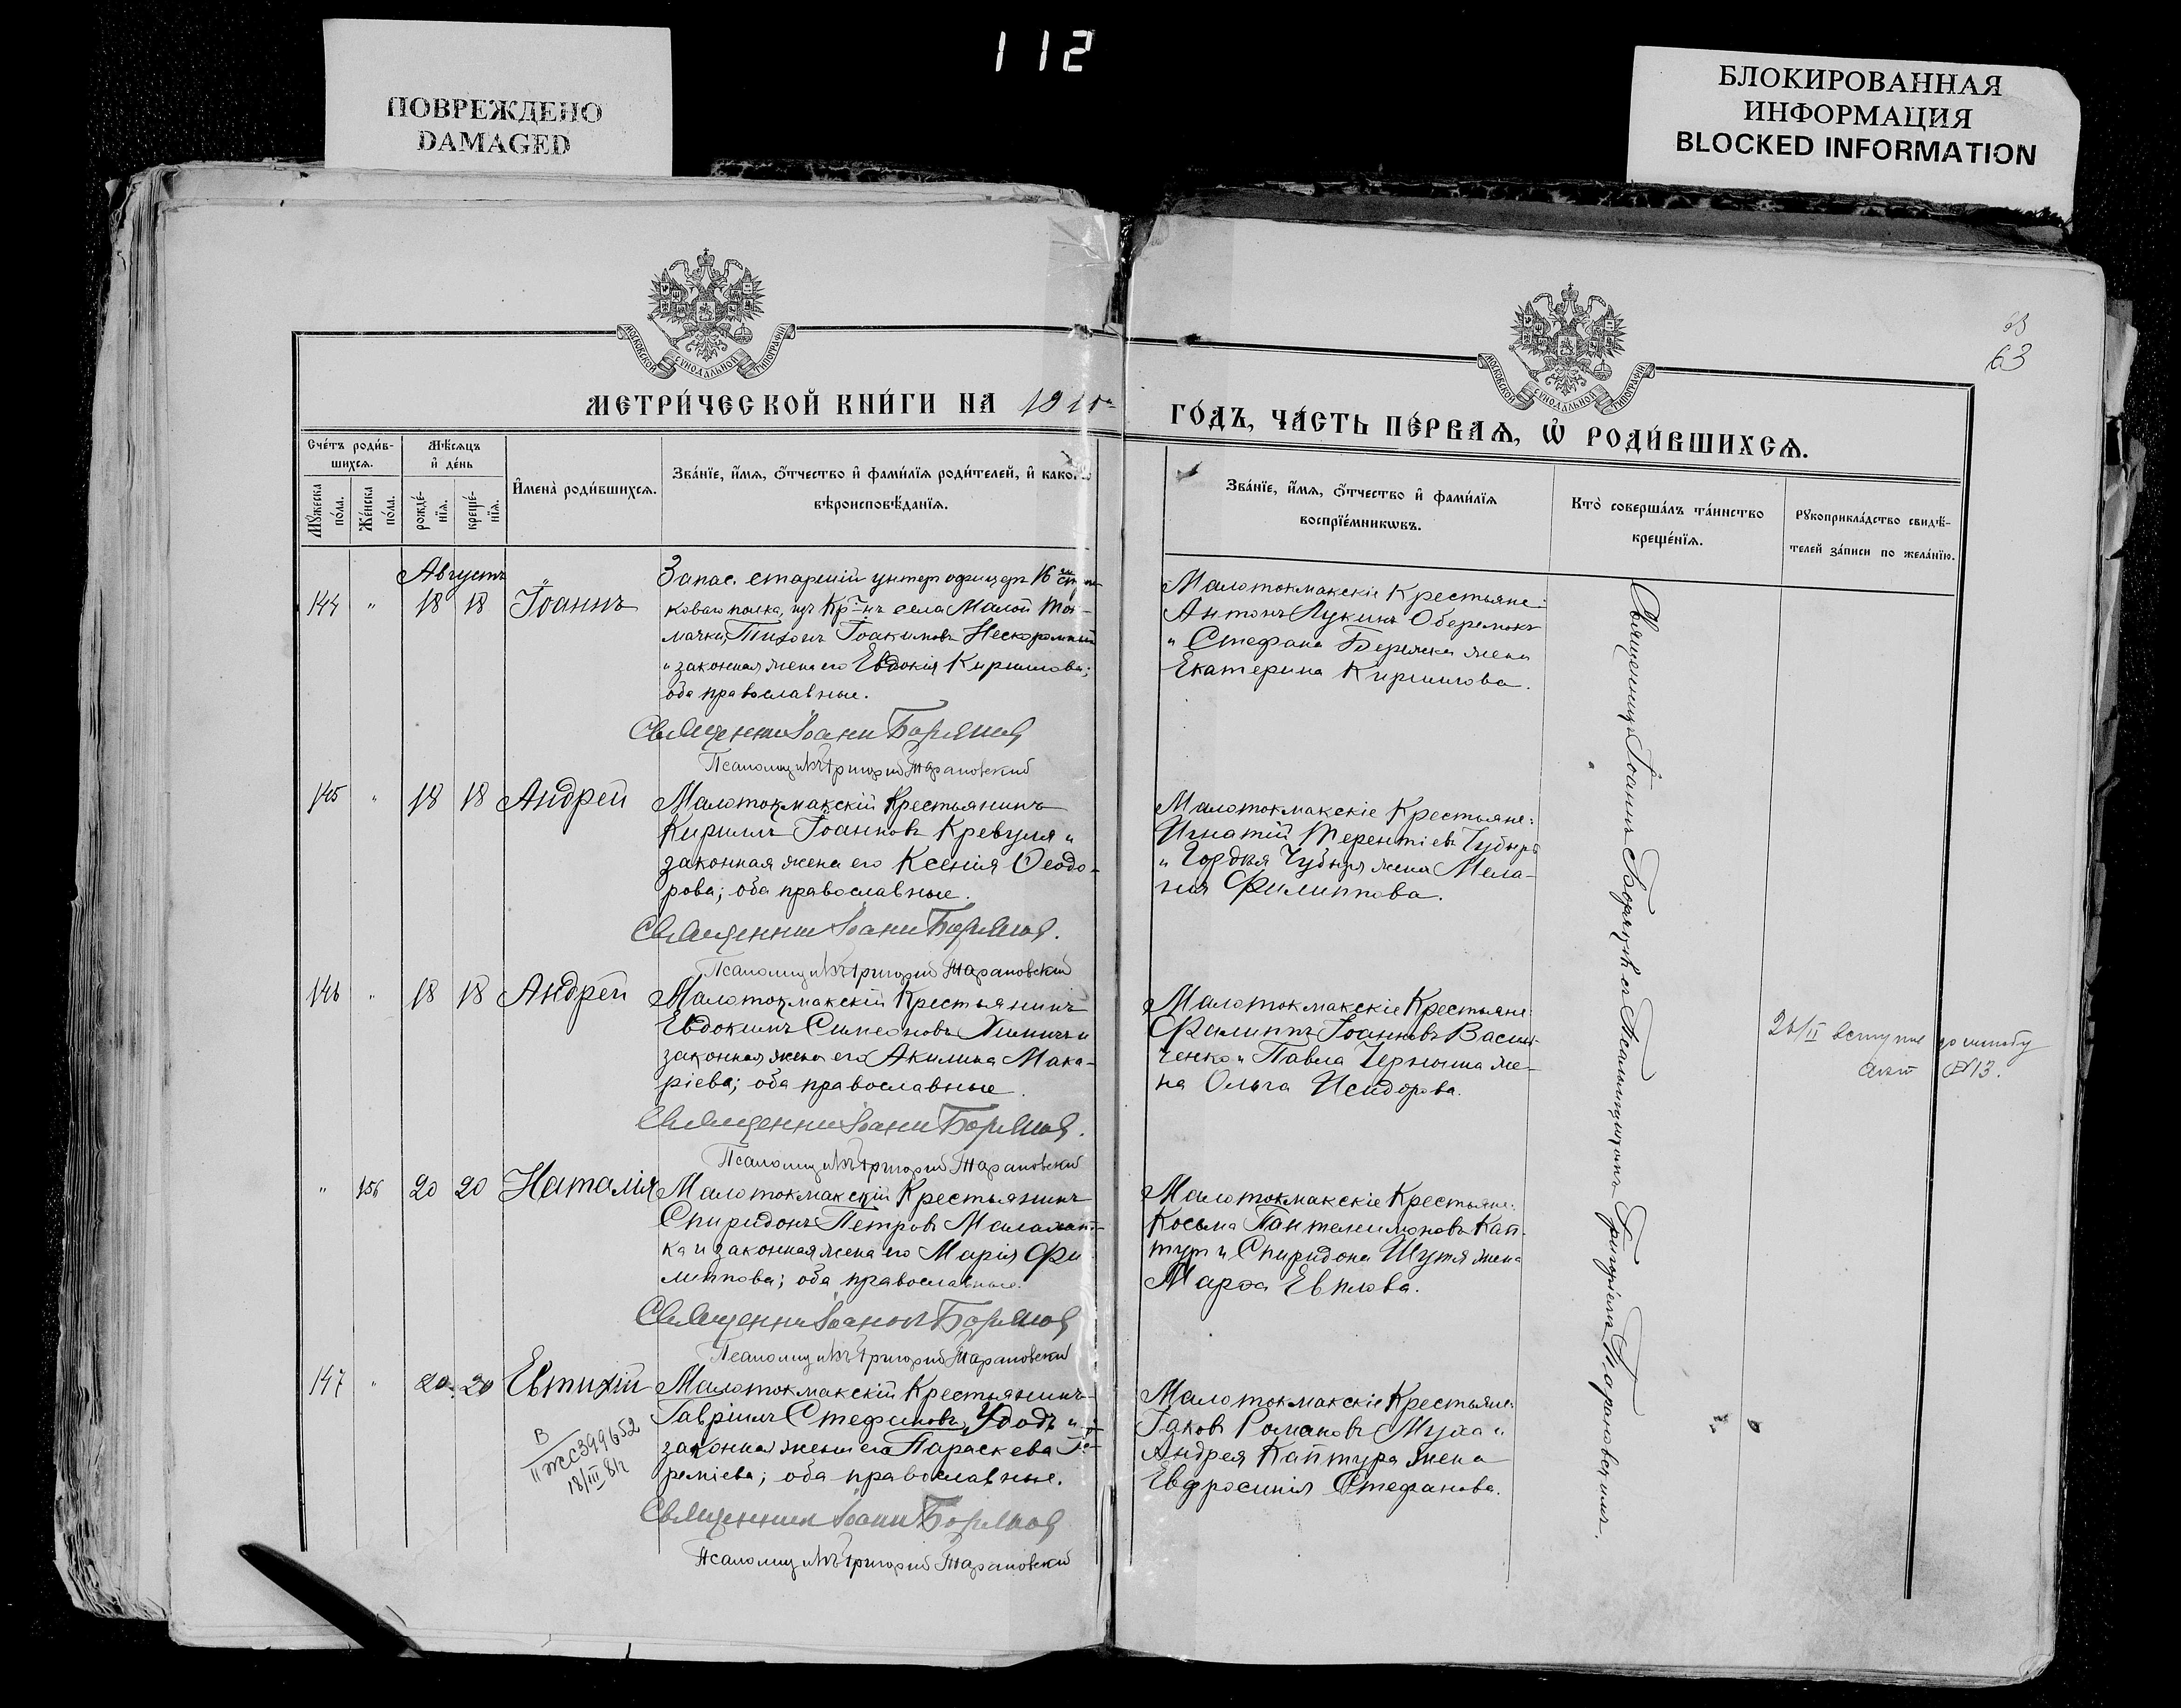 112
ПОВРЕЖДЕНО
DAMAGED
БЛОКИРОВАННАЯ
ИНФОРМАЦИЯ
BLOCKED INFORMATION
63
63
МОСКОВСКОЙ СѴНОДАЛЬНОЙ ТИПОГРАФІИ
МОСКОВСКОЙ СѴНОДАЛЬНОЙ ТИПОГРАФІИ
МЕТРИ́ЧЕСКОЙ КНИ́ГИ НА 191
ГО́ДЪ, ЧА́СТЬ ПЕ́РВАѦ, Ѡ҆ РОДИ́ВШИХСѦ.
Сче́тъ роди́в-
шихсѧ.
Мꙋ́жеска по́ла.
Же́нска по́ла.
Мѣ́сѧцъ
и҆ де́нь
рожде́-
нїѧ.
креще́-
нїѧ.
И҆мена̀ роди́вшихсѧ.
Зва́нїе, и҆́мѧ, ѻ҆́тчество и҆ фами́лїѧ роди́телей, и҆ како́гѡ
вѣроисповѣ́данїѧ.
Зва́нїе, и҆́мѧ, ѻ҆́тчество и҆ фами́лїѧ
воспрїе́мникѡвъ.
Кто̀ соверша́лъ та́инство
креще́нїѧ.
Рꙋкоприкла́дство свидѣ́-
телей за́писи по жела́нїю.
Августъ
144 " 18 18 Іоаннъ
Запас. старшій унтер офицеръ 16
коваго полка, изъ Кр-нъ села Малой Ток-
мачки, Тихонъ Іоакимовъ Нескоромный
и законная жена его Евдокія Кириллова;
оба православные.
Священник Іоанн
Псаломщикъ Григорій Тарановскій
Малотокмакскіе Крестьяне:
Антонъ Лукинъ Оберемокъ
и Стефана Бережка жена
Екатерина Кириллова.
145 " 18 18 Андрей
Малотокмакскій Крестьянинъ
Кириллъ Іоанновъ Кревуля и
законная жена его Ксенія Ѳеодо-
рова; оба православные.
Священник Іоанн
Псаломщикъ Григорій Тарановскій
Малотокмакскіе Крестьяне:
Игнатій Терентіевъ Чубырь
и Гордѣя Чубыря жена Мела-
нія Филиппова.
146 " 18 18 Андрей
Малотокмакскій Крестьянинъ
Евдокимъ Симеоновъ и
законная жена его Акилина Мака-
ріева; оба православные.
Священник Іоанн
Псаломщикъ Григорій Тарановскій
Малотокмакскіе Крестьяне:
Филиппъ Іоанновъ Василь-
ченко и Павла Черныша же-
на Ольга Исидорова.
26/II вступив до шлюбу
акт №13.
" 156 20 20 Наталія
Малотокмакскій Крестьянинъ
Спиридонъ Петровъ
ка и законная жена его Марія Фи-
липпова; оба православные.
Священник Іоанн
Псаломщикъ Григорій Тарановскій
Малотокмакскіе Крестьяне:
Косьма Пантелеимоновъ Кап-
тур и Спиридона Шутя жена
Марѳа Евплова.
147 " 20 20 Евтихій
Малотокмакскій Крестьянинъ
Гавріилъ Стефановъ Удодъ и
законная жена его Параскева Іе-
реміева; оба православные.
Священник Іоанн
Псаломщикъ Григорій Тарановскій
В
II жс 399652
18/III
Малотокмакскіе Крестьяне:
Іаковъ Романовъ Муха и
Андрея Каптура жена
Евфросинія Стефанова.
Священникъ Іоаннъ съ Псаломщикомъ Григоріемъ Тарановскимъ.